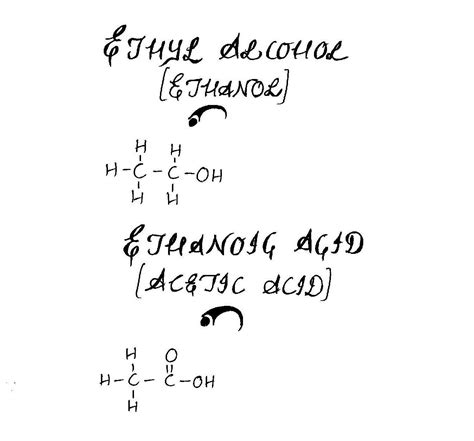 ETHYL ALCOHOL
[ETHANOL]
H H
H-C-C-OH
H H
ETHANOIC ACID
[ACETIC ACID]
H O
H-C-C-OH
H